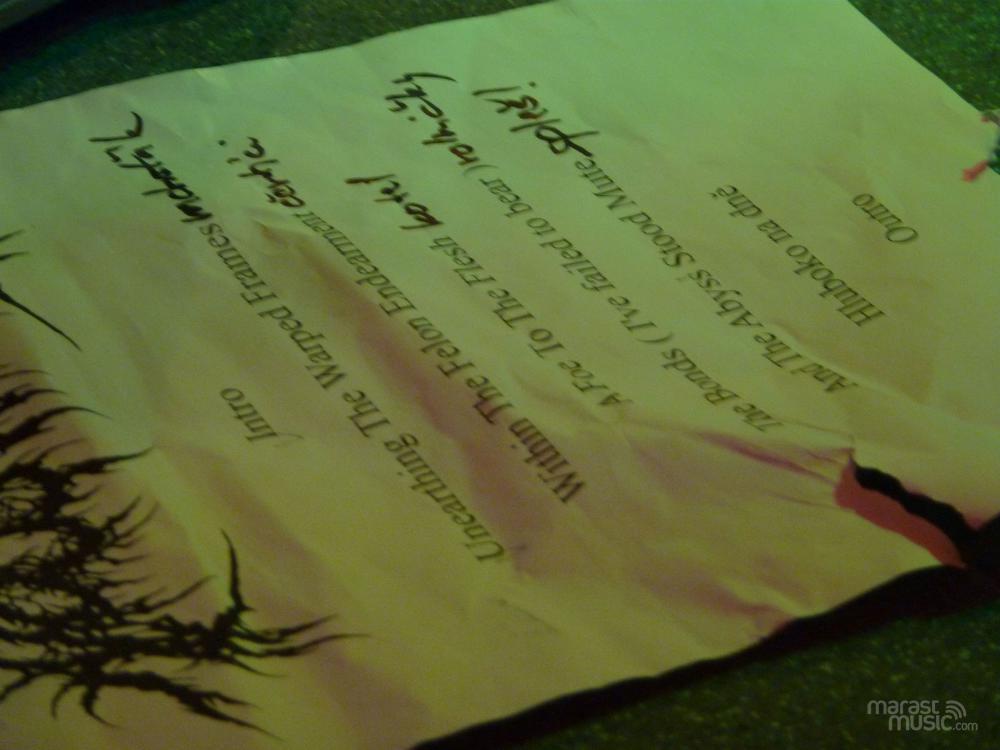 Intro
Unearthing The Warped Frames
Within The Felon Endearment
A Foe To The Flesh
The Bonds ( I've failed to bear ) rolničky
And The Abyss Stood Mute
Hluboko na dně
Outro
marast
music.com